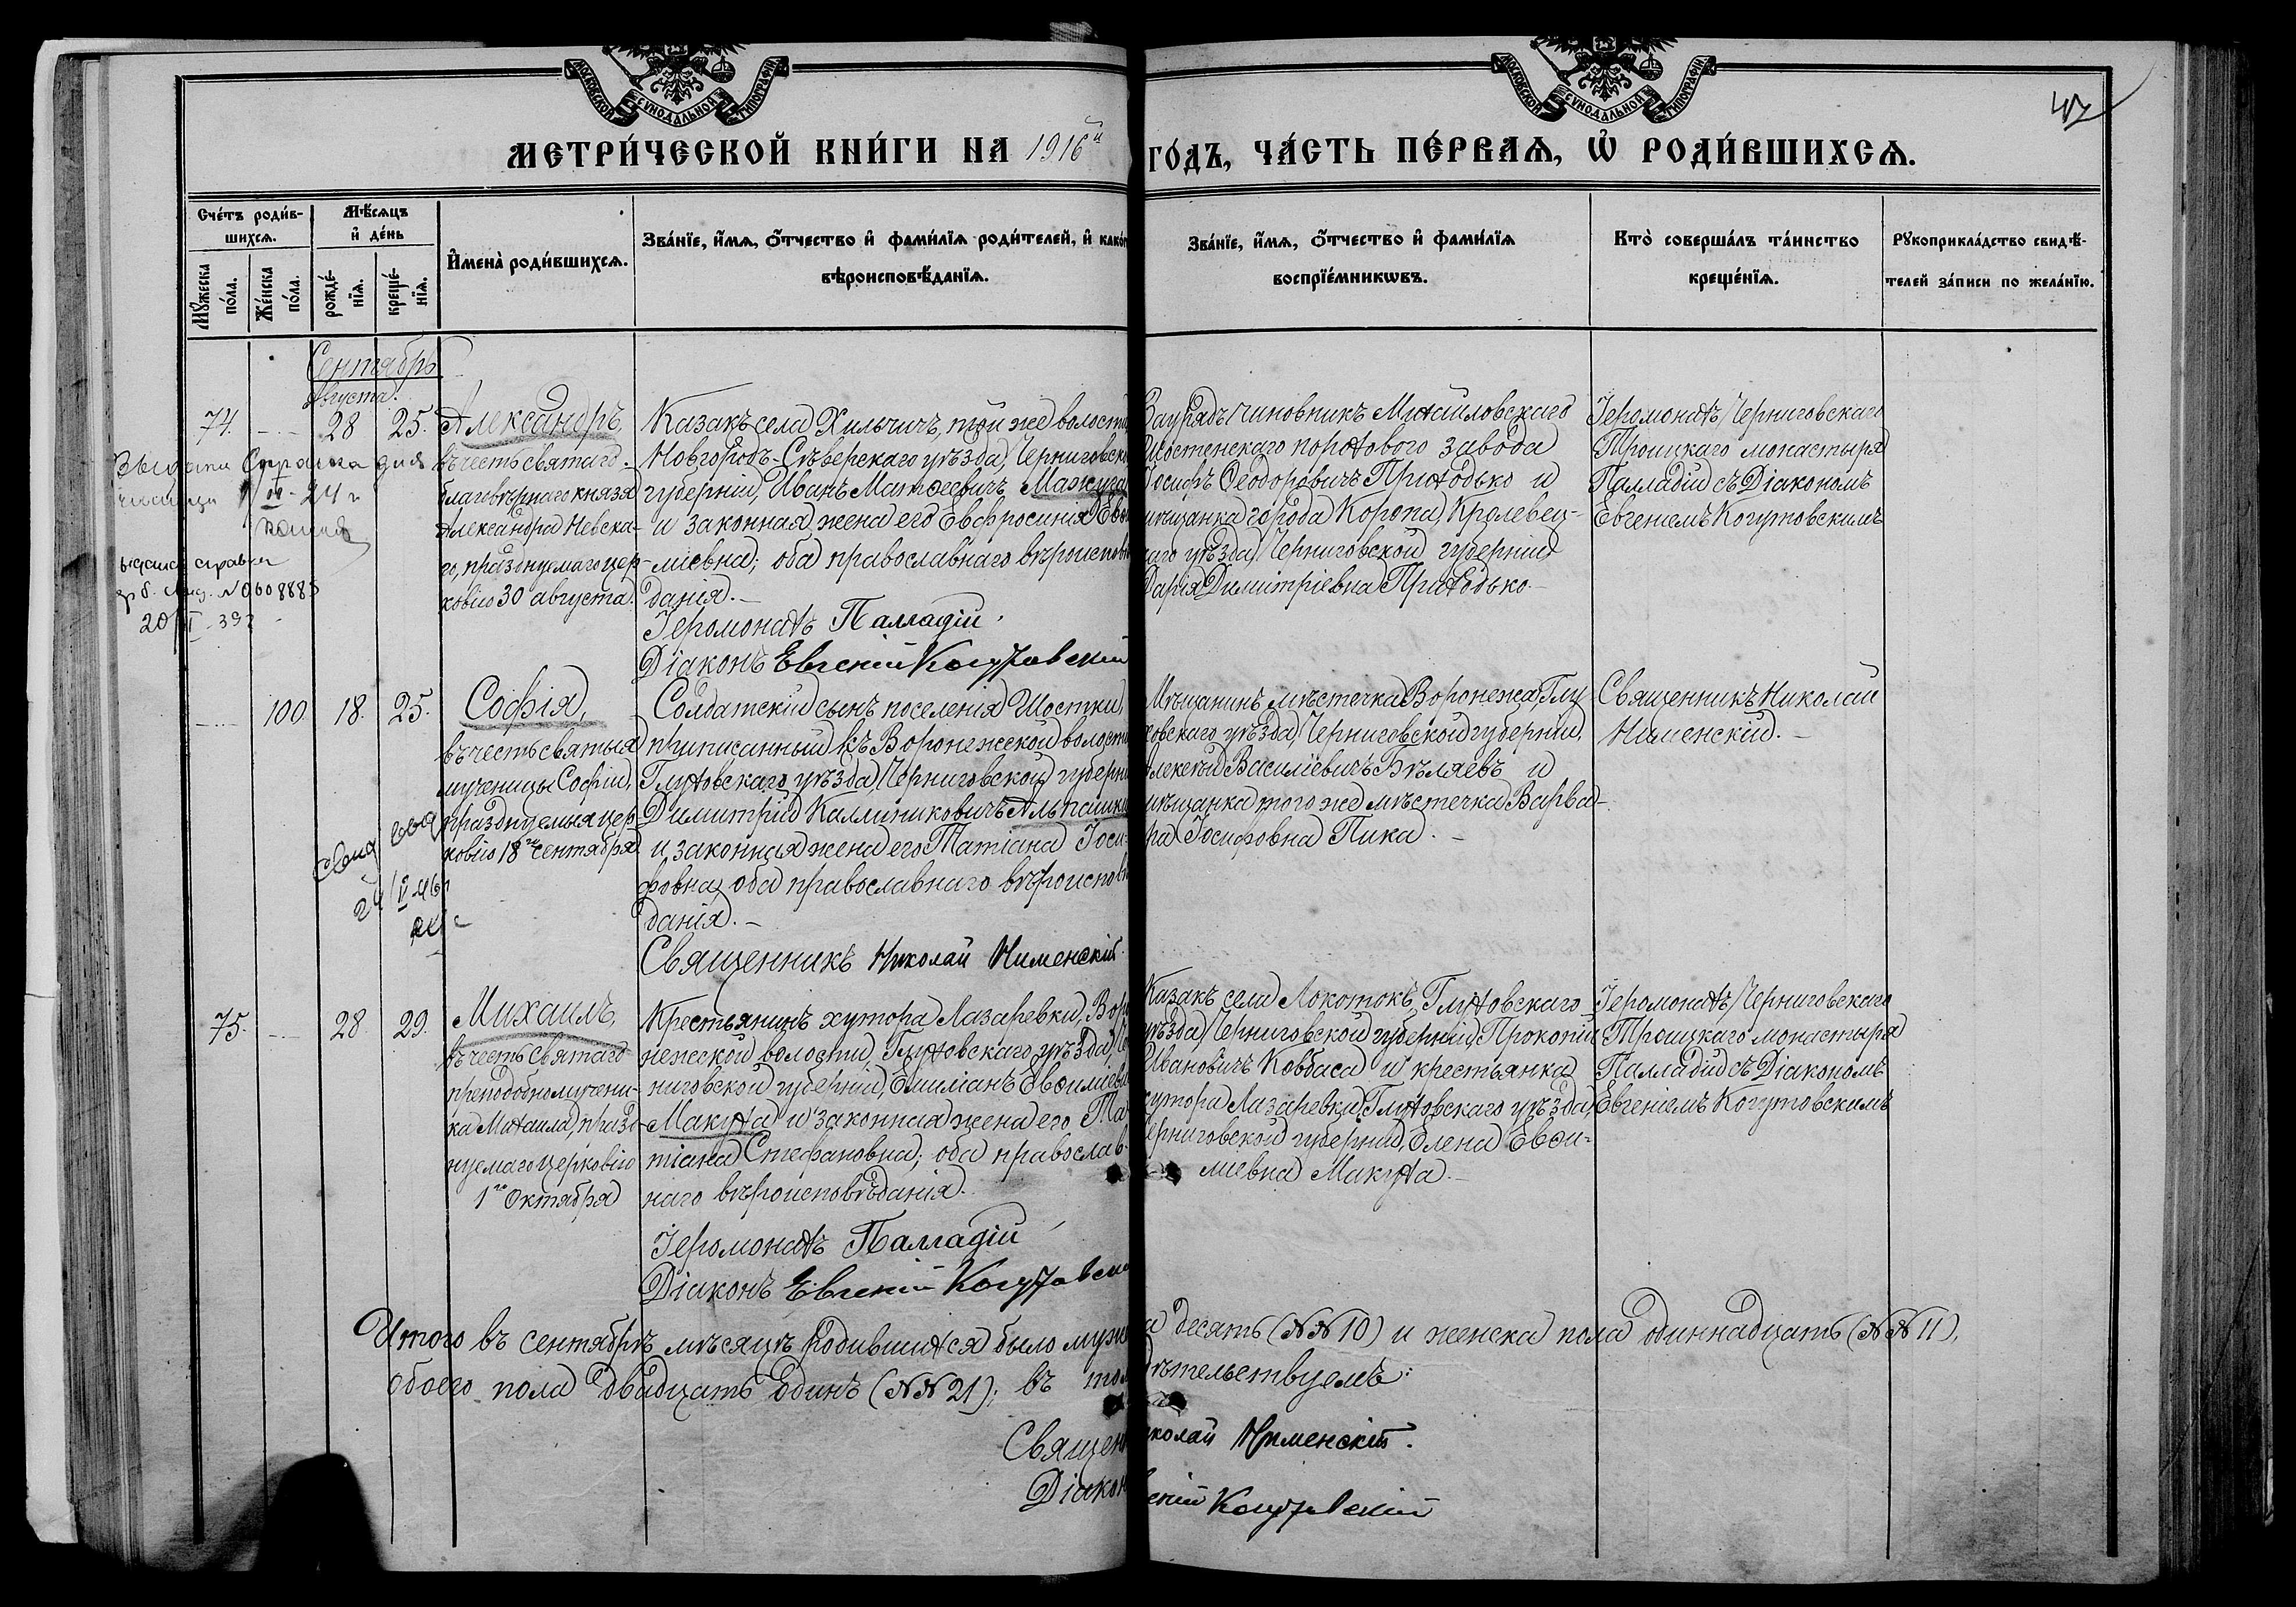 МОСКОВСКОЙ СѴНОДАЛЬНОЙ ТИПОГРАФІИ
МОСКОВСКОЙ СѴНОДАЛЬНОЙ ТИПОГРАФІИ
МЕТРИ́ЧЕСКОЙ КНИ́ГИ НА 1916й ГО́ДЪ, ЧА́СТЬ ПЕ́РВАѦ, Ѡ РОДИ́ВШИХСѦ.
Сче́тъ роди́в-
шихсѧ.
Мꙋжеска по́ла.
Же́нска по́ла.
Мѣ́сѧцъ
и҆ де́нь
рожде́-
нїѧ.
креще́-
нїѧ.
И҆мена̀ роди́вшихсѧ.
Зва́нїе, и҆́мѧ, ѻ҆́тчество и҆ фами́лїѧ роди́телей, и҆ како́г
вѣроисповѣ́данїѧ.
Зва́нїе, и҆́мѧ, ѻ҆́тчество и҆ фами́лїѧ
воспрїе́мникѡвъ.
Кто̀ соверша́лъ та́инство
креще́нїѧ.
Рꙋкоприкла́дство свидѣ́-
телей за́писи по жела́нїю.
Сентябрь
Августа.
74. — 28 25.
Александръ,
въ честь святаго
благовѣрнаго князя
Александра Невска-
го, празднуемаго цер-
ковію 30 августа.
Казакъ села Хильчичъ, той же волости
Новгородъ-Сѣверскаго уѣзда, Черниговско
губерніи, Иванъ Матѳеевичъ Мажуга
и законная жена его Евфросинія Ев
міевна; оба православнаго вѣроисповѣ
данія.—
Іеромонахъ Палладій.
Діаконъ Евгеній Когутовскій
Заурядъ-чиновникъ Михайловскаго
Шостенскаго порохового завода
Іосифъ Ѳеодоровичъ Приходько и
мѣщанка города Коропа, Кролевец-
каго уѣзда, Черниговской губерніи
Дарія Димитріевна Приходько.—
Іеромонахъ Черниговскаго
Троицкаго монастыря
Палладій съ Діакономъ
Евгеніемъ Когутовскимъ
справка
№ 0608885
— 100. 18. 25.
Софія,
въ честь святыя
мученицы Софіи,
празднуемыя цер-
ковію 18го сентября.
Солдатскій сынъ поселенія Шостки,
приписанный къ Воронежской волости
Глуховскаго уѣзда, Черниговской губерні
Димитрій Каллиниковичъ Альпашки
и законная жена его Татіана Іоси-
фовна, оба православнаго вѣроисповѣ
данія.—
Священникъ Николай Нименскій.
Мѣщанинъ мѣстечка Воронежа, Глу
ховскаго уѣзда, Черниговской губерніи,
Алексѣй Василіевичъ Бѣляевъ и
мѣщанка того же мѣстечка Варва-
ра Іосифовна Пика.—
Священникъ Николай
Нименскій.—
75. — 28. 29.
Михаилъ,
въ честь святаго
преподобномучени-
ка Михаила, празд-
нуемаго церковію
1го Октября
Крестьянинъ хутора Лазаревки, Вор
нежской волости, Глуховскаго уѣзда, Че
ниговской губерніи, Емиліанъ Евфиміеви
Макуха и законная жена его Та
тіана Стефановна; оба православ-
наго вѣроисповѣданія.
Іеромонахъ Палладій
Діаконъ Евгеній Когутовски
Казакъ села Локотокъ, Глуховскаго
уѣзда, Черниговской губерніи, Прокопій
Ивановичъ Ковбаса и крестьянка
хутора Лазаревки, Глуховскаго уѣзда,
Черниговской губерніи, Елена Евфи-
міевна Макуха.—
Іеромонахъ Черниговскаго
Троицкаго монастыря
Палладій съ Діакономъ
Евгеніемъ Когутовскимъ
Итого въ сентябрѣ мѣсяцѣ родившихся было муж а десять (№№ 10) и женска пола одиннадцать (№№ 11),
обоего пола двадцать одинъ (№№ 21); въ том дѣтельствуемъ:
Священ иколай Нименскій.
Діакон еній Когутовскій